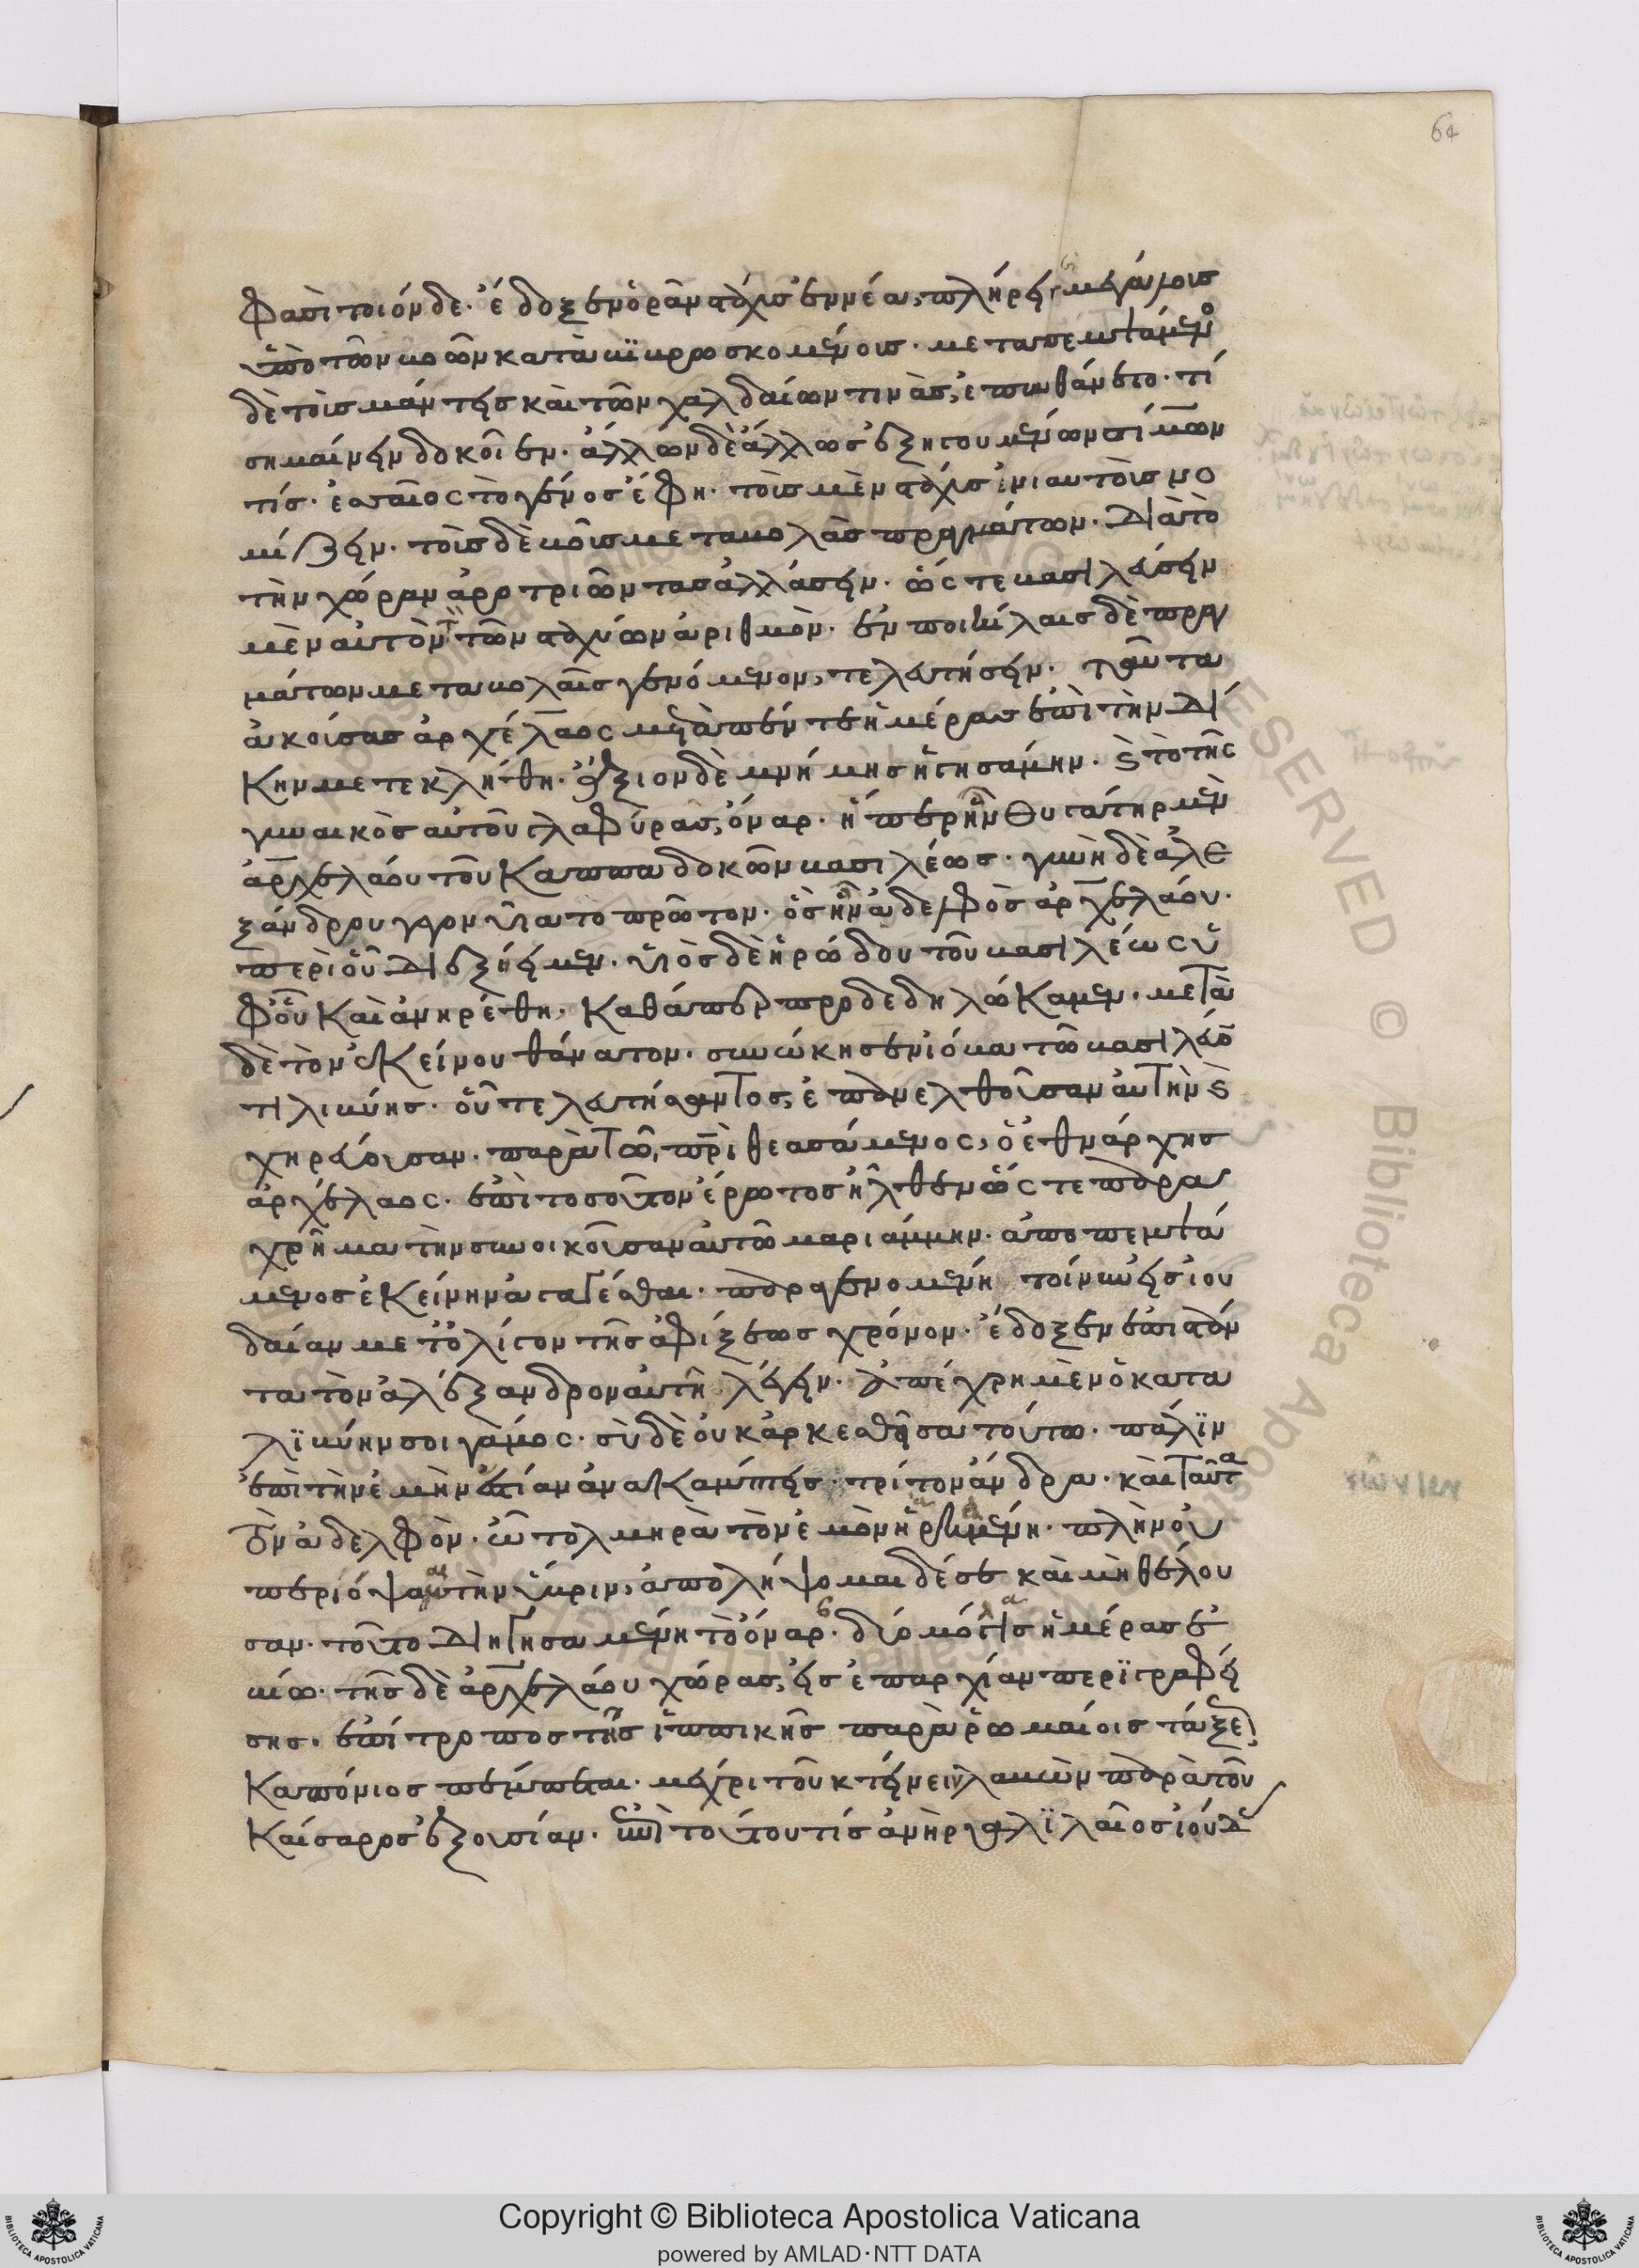 64
φασὶ τοιόνδε· ἔδοξεν ὁρᾶν στάχυς ἐννέα, πλήρεις μεγάλοις
ὑπὸ τῶν βοῶν καταβιβρωσκομένους· μεταπεμψάμενο
δὲ τοὺς μάντεις καὶ τῶν χαλδαίων τινὰς, ἐπυνθάνετο· τί
σημαίνειν δοκοῦεν· ἄλλων δὲ ἄλλως ἐξηγουμένων σίμων
τίς· ἐσσαῖος τὸ γένος ἔφη· τοὺς μὲν στάχυς ἐνιαυτοὺς νο
μίζειν· τοὺς δὲ βοῦς μεταβολὰς πραγμάτων· διὰ τὸ
τὴν χώραν ἀροτριῶντας ἀλλάσειν· ὥς τε βασιλεύσειν
μὲν αὐτὸν τῶν σταχύων ἀριθμὸν· ἐν ποικίλαις δὲ πραγ
μάτων μεταβολαῖς γενόμενον, τελευτήσειν· ταῦτα
ἀκούσας ἀρχέλαος μετὰ πέντε ἡμέρας ἐπὶ τὴν δί
κην μετεκλήθη· ἄξιον δὲ μνήμης ἡγησάμην· καὶ τὸ τῆς
γυναικὸς αὐτοῦ γλαφύρας, ὄναρ· ἥπερ ἦν θυγάτηρ μὲν
ἀρχελάου τοῦ καππαδοκῶν βασιλέως· γυνὴ δὲ ἀλε
ξάνδρου γεγονυῖα τὸ πρῶτον· ὃς ἦν ἀδελφὸς ἀρχελάου·
περὶ οὗ διέξηειμεν· υἱὸς δὲ ἡρώδου τοῦ βασιλέως ὑ
φ' οὗ καὶ ἀνηρέθη, καθάπερ προδεδηλώκαμεν· μετὰ
δὲ τὸν ἐκείνου θάνατον· συνώκησεν ἰόβα τῶ βασιλεύο
τι λιβύης· οὗ τελευτήσαντος, ἐπανελθοῦσαν αὐτὴν καὶ
χηρεύουσαν· παρὰ τῶ πρὶ θεασάμενος, ὁ ἐθνάρχης
ἀρχέλαος· ἐπὶ τοσοῦτον ἔρωτος ἦλθεν ὥς τε παρα
χρῆμα τὴν συνοικοῦσαν αὐτῶ μαριάμμην· ἀποπεμψά
μενος ἐκείνην ἀγαγέσθαι· παραγενομένη τοίνυν εἰς ἰου
δαίαν μετ' ὀλίγον τῆς ἀφίξεως χρόνον· ἔδοξεν ἐπιστάν
τα τὸν ἀλέξανδρον αὐτῆ λέγειν· ἀπέχρη μὲν ὁ κατα
λιβύην σοι γάμος· σὺ δὲ οὐκ ἀρκεσθεῖσα τούτω· πάλιν
ἐπὶ τὴν ἐμὴν ἑστίαν ἀνακάμπτεις· τρίτον ἄνδρα· καὶ ταῦτα
τὸν ἀδελφὸν· ὦ τολμηρὰ τὸν ἐμὸν ἡρημένη· πλὴν οὐ
περιόψομαι τὴν ὕβριν, ἀπολήψομαι δέ σε καὶ μὴ θέλου
σαν· τοῦτο διηγησαμένη τὸ ὄναρ· δύο μόλις ἡμέρας ἐ
βίω· τῆς δὲ ἀρχελάου χώρας, εἰς ἐπαρχίαν περιγραφεί
σης· ἐπίτροπος τῆς ἱππικῆς παρὰ ῥωμαίοις τάξεως
κωπώνιος πέμπεται· μέχρι τοῦ κτείνειν λαβὼν παρὰ τοῦ
καίσαρος ἐξουσίαν· ἐπὶ τούτου τίς ἀνὴρ γαλιλαῖος ἰούδας